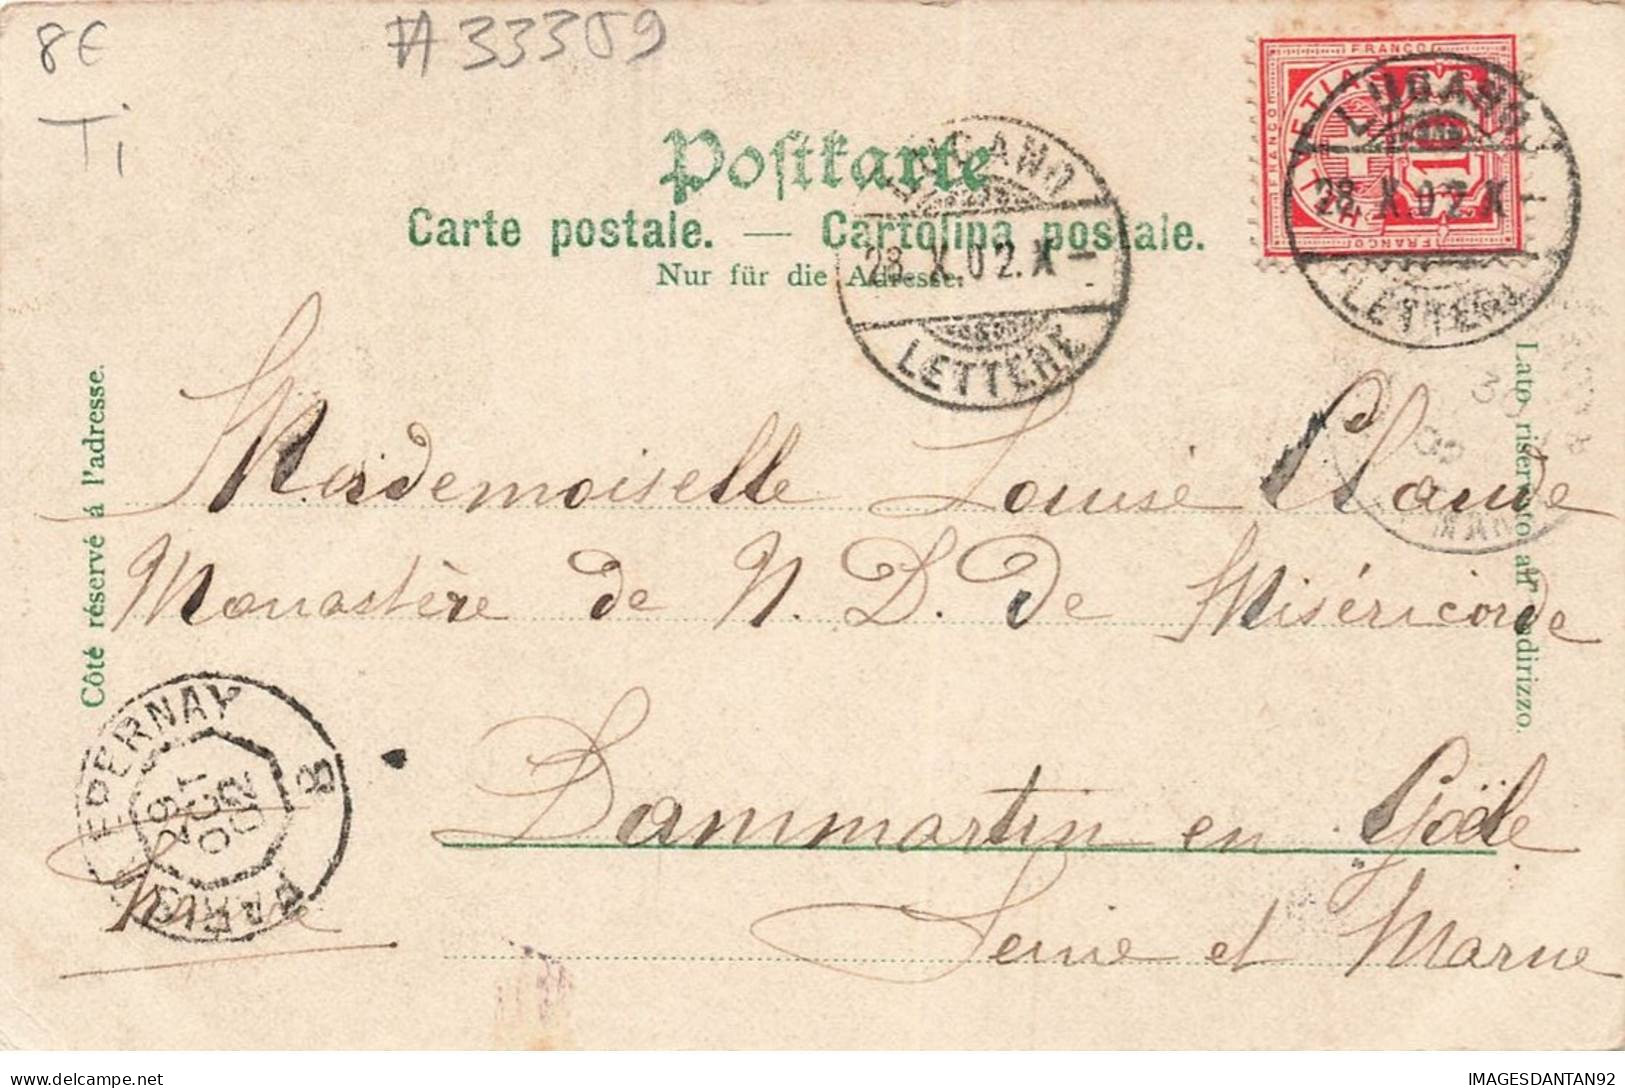 8€
#33359
Ti
FRANCO
10
LUGANO
28.X.02.X
LETTERE
Postkarte
Carte postale. — Cartolina postale.
Nur für die Adresse.
LUGANO
28.X.02.X
LETTERE
Côté réservé à l'adresse.
Lato riservato all' indirizzo.
Mademoiselle Louise Claude
Monastère de N. D. de Miséricorde
Dammartin en Goële
Seine et Marne
EPERNAY
29
OCT
02
PARIS
IMAGESDANTAN92